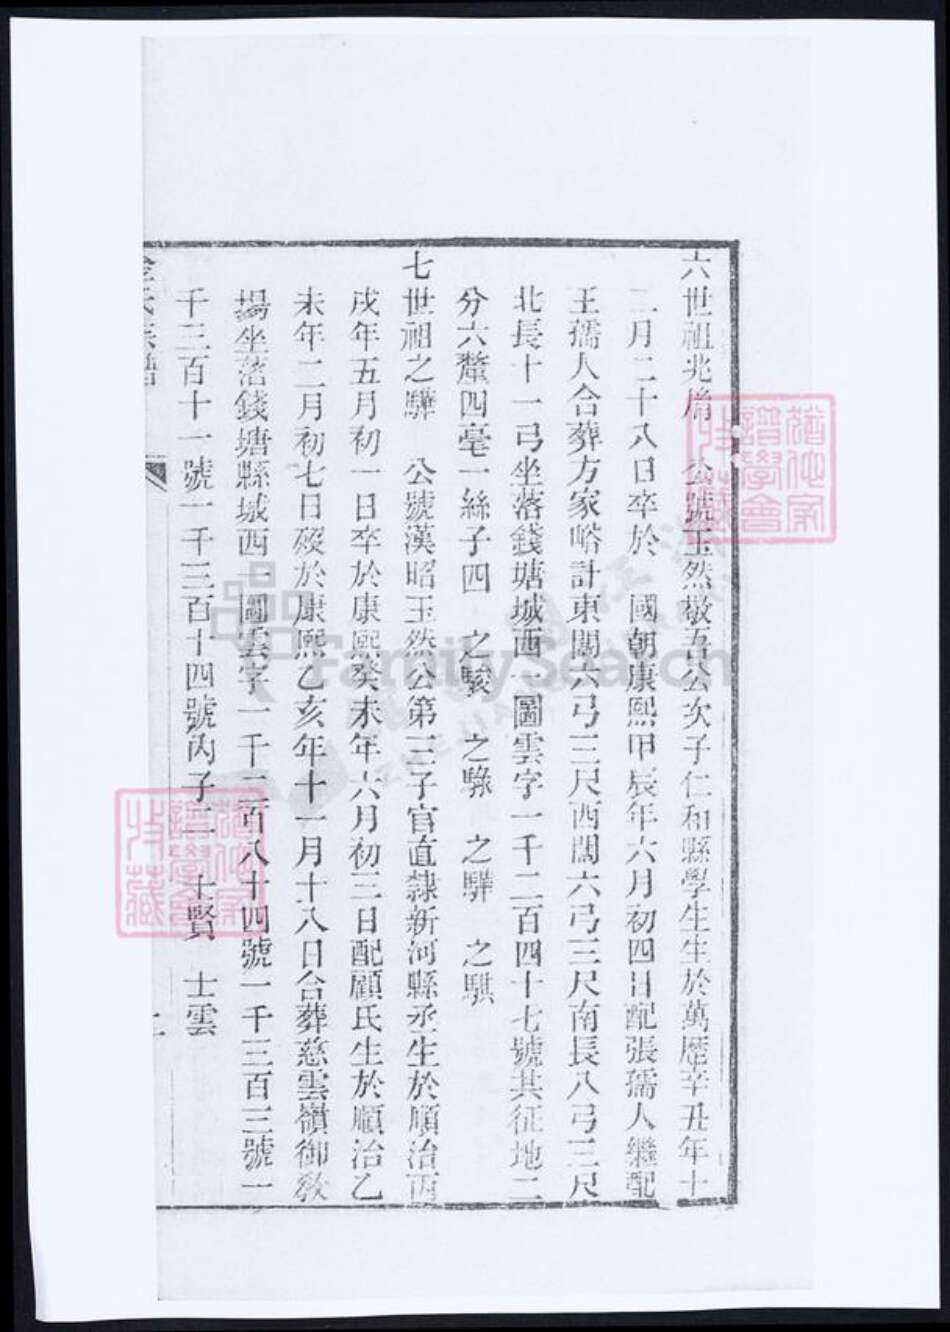 六世祖兆 公號玉然敬吾公次子仁和縣學生生於萬曆辛丑年十
二月二十八日卒於 國朝康熙甲辰年六月初四日配張孺人繼配
王孺人合葬方家峪計東闊六弓三尺西闊六弓三尺南長八弓三尺
北長十一弓坐落錢塘城西一圖雲字一千二百四十七號共征地二
分六釐四毫一絲子四 之駿 之騄 之驊 之騏
七世祖之驊 公號漢昭玉然公第三子官直隸新河縣丞生於順治丙
戌年五月初一日卒於康熙癸未年六月初三日配顧氏生於順治乙
未年二月初七日歿於康熙乙亥年十一月十八日合葬慈雲嶺御教
場坐落錢塘縣城西一圖雲字一千二百八十四號一千三百三號一
千三百十一號一千三百十四號內子二 士賢 士雲
氏宗譜
FamilySearch